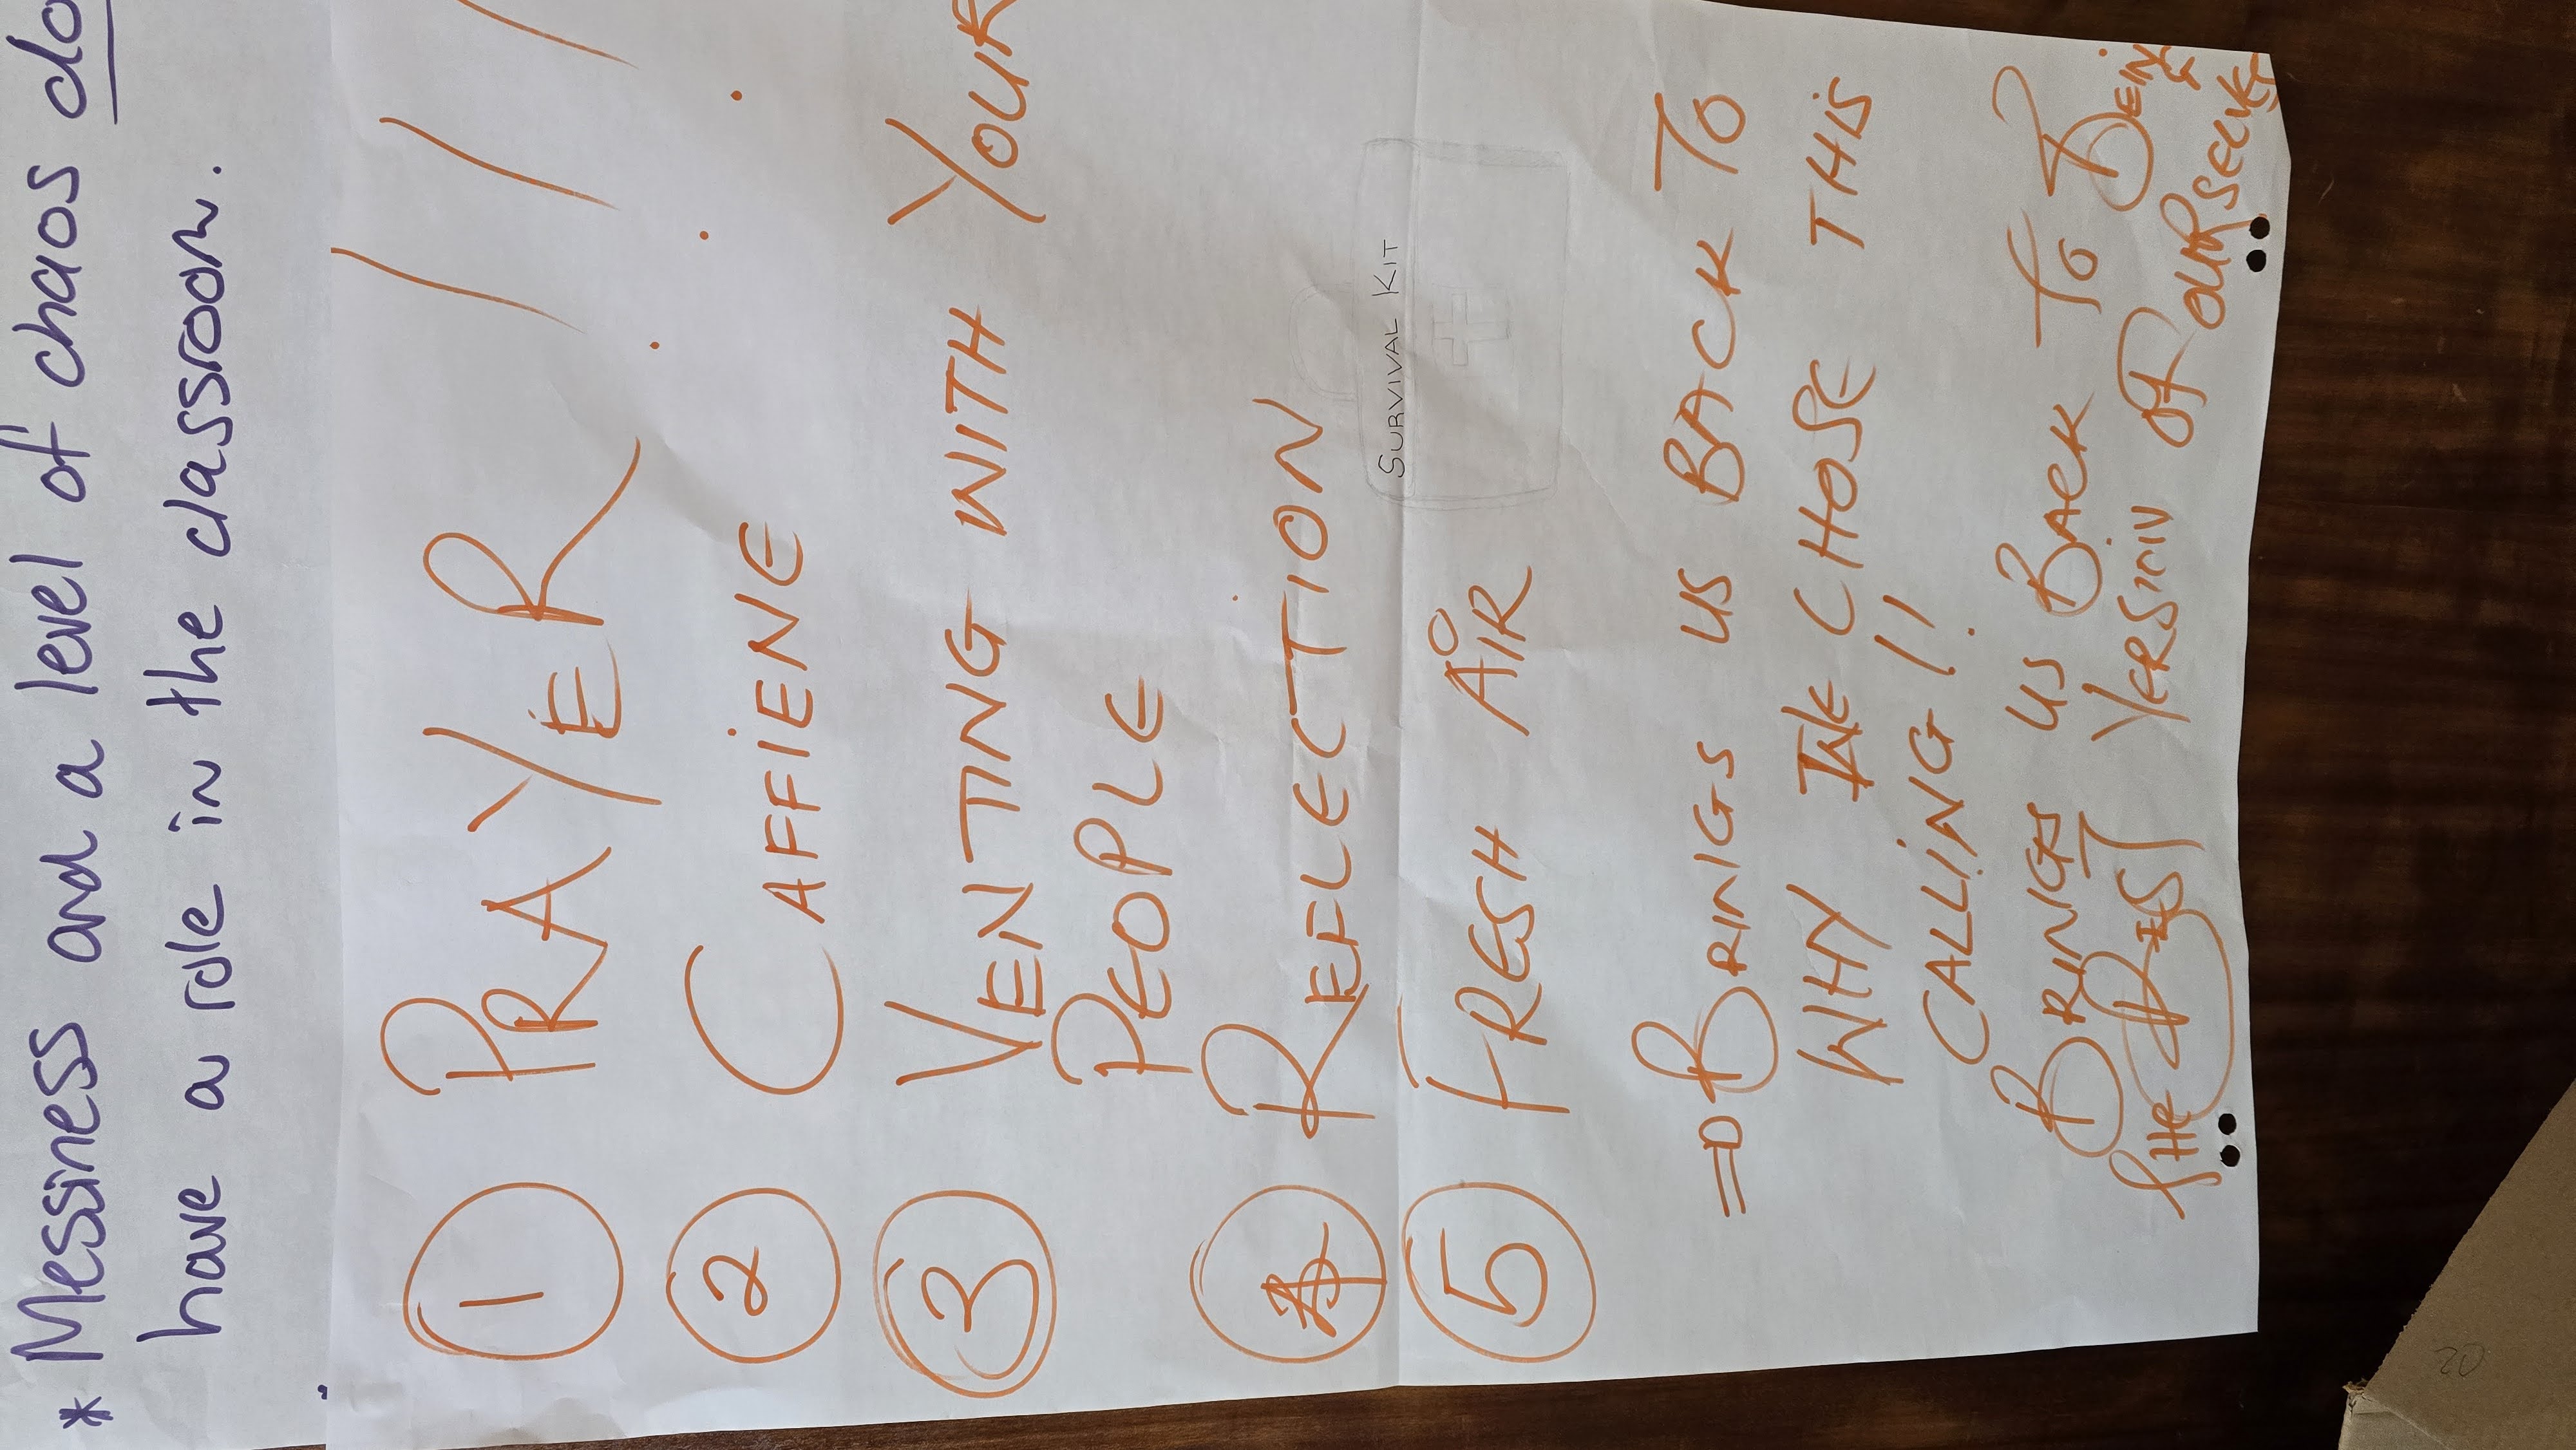 * Messiness and a level of chaos do
have a role in the classroom.
1 PRAYER !!!
2 CAFFIENE
3 VENTING WITH YOUR
PEOPLE
4 REFLECTION
SURVIVAL KIT
5 FRESH AIR
=D BRINGS US BACK TO
WHY WE CHOSE THIS
CALLING!!
BRINGS US BACK TO BEING
THE BEST VERSION OF OURSELVES
20